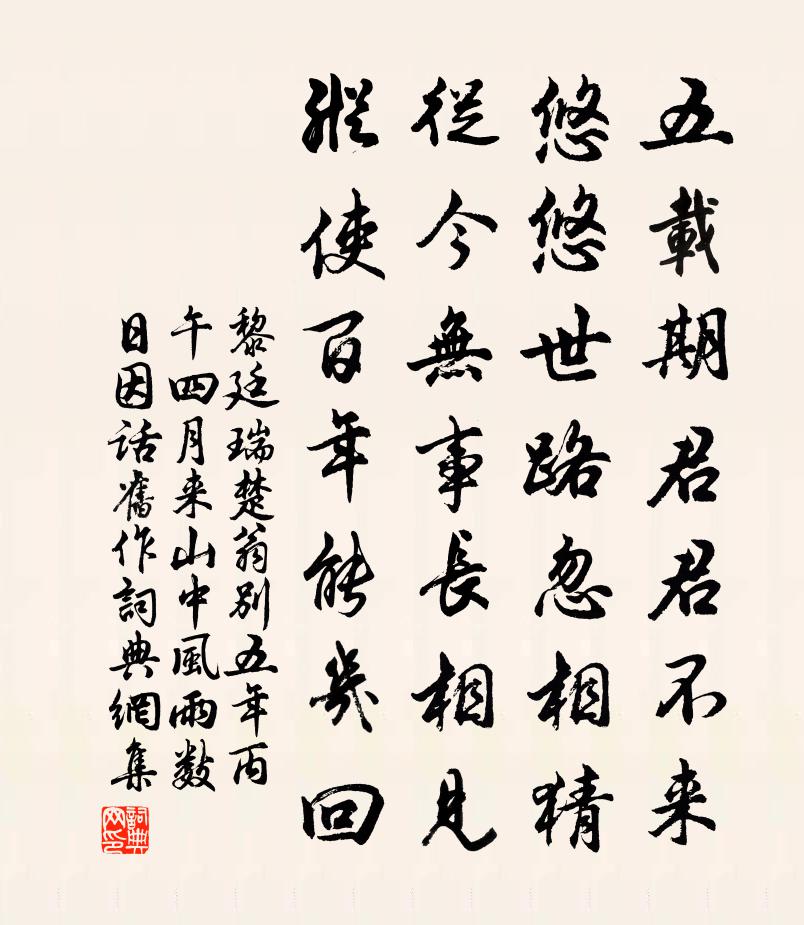 五載期君君不来
悠悠世路忽相猜
從今無事長相見
縱使百年能幾回
黎廷瑞楚翁别五年丙
午四月来山中風雨数
日因话舊作詞典網集
詞典網印